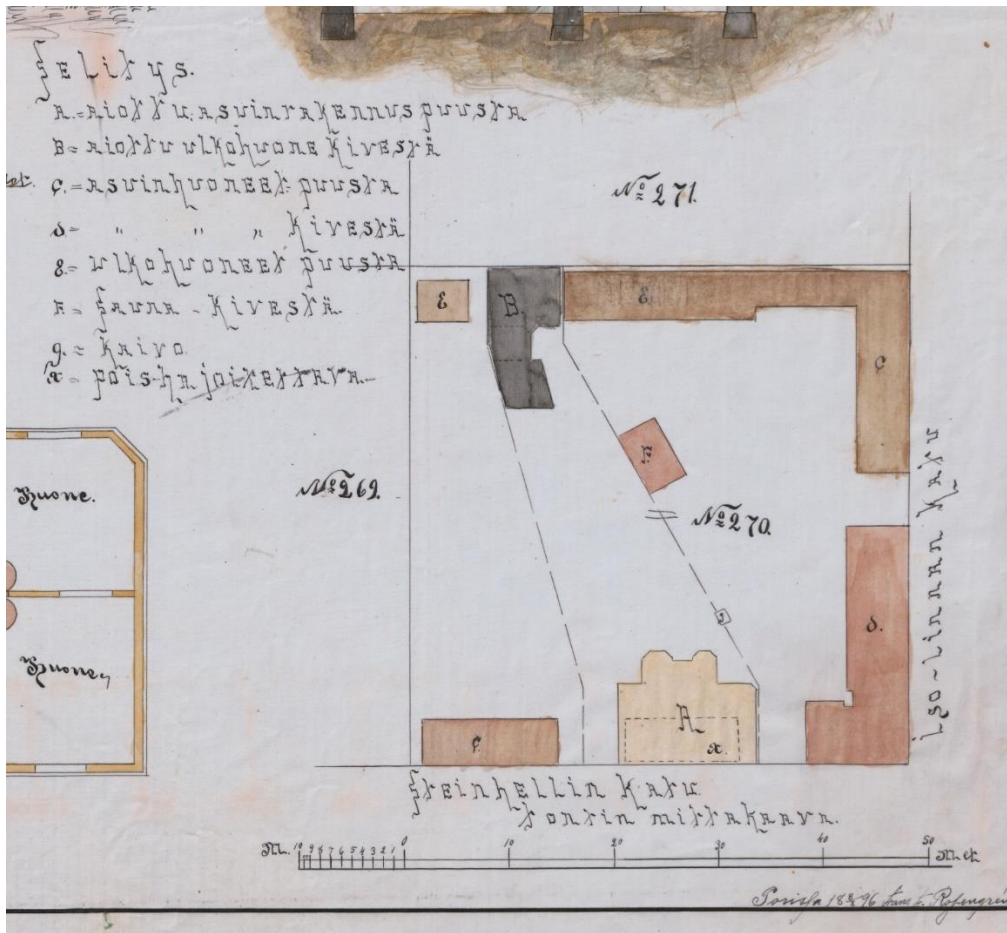 Selitys.
A.= Aiottu asuinrakennus puusta
B= Aiottu ulkohuone Kivestä
C.= Asuinhuoneet puusta
D= " " " Kivestä
E= ulkohuoneet puusta
F= Sauna - Kivestä.
G.= Kaivo
x= pois-hajoitettava
No 271.
E
B.
E
C
F.
No 269.
No 270.
G
D.
A
x.
C
Huone.
Huone,
Iso-linnan Katu
Steinhellin Katu
tontin mittakaava.
M. 10 9 8 7 6 5 4 3 2 1 0 10 20 30 40 50
Porissa 96